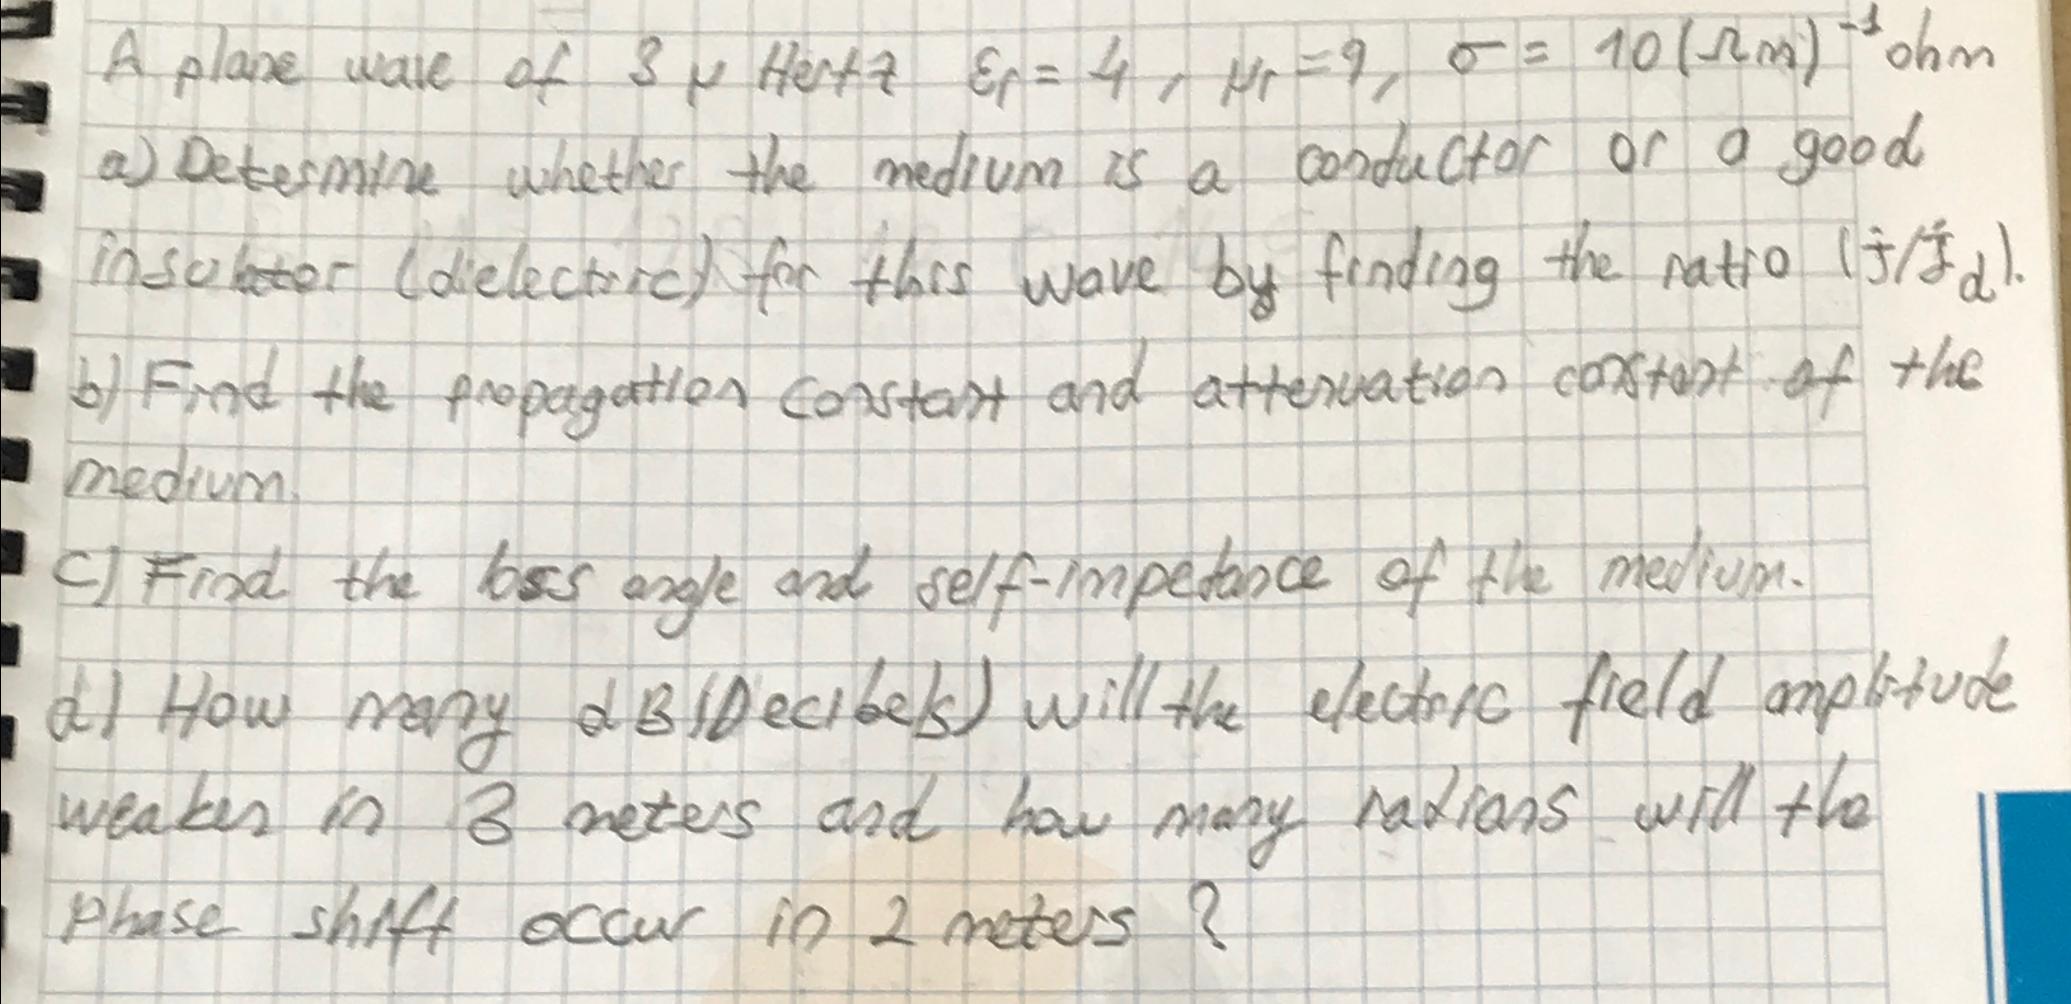 A plane wave of 3 μ Hertz εr = 4, μr = 9, σ = 10 (Ωm)⁻¹ ohm
a) Determine whether the medium is a conductor or a good
insulator (dielectric) for this wave by finding the ratio (J/Jd).
b) Find the propagation constant and attenuation constant of the
medium.
c) Find the loss angle and self-impedance of the medium.
d) How many dB (Decibels) will the electric field amplitude
weaken in 3 meters and how many radians will the
phase shift occur in 2 meters ?